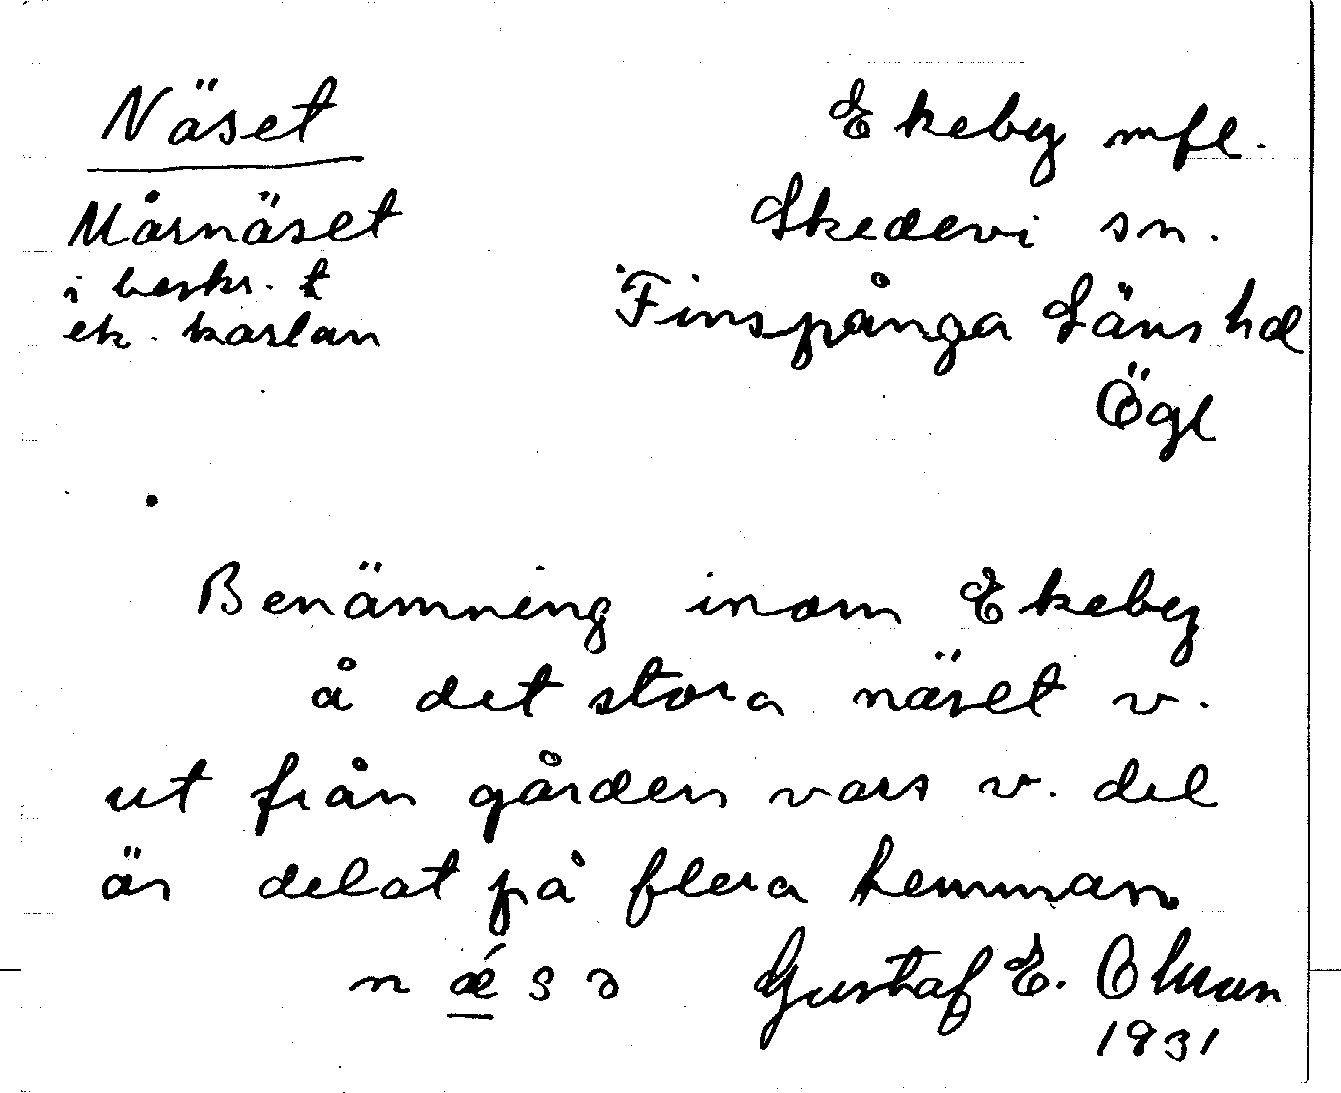 Näset
Mårnäset
i beskr. t
ek. kartan
Ekeby mfl.
Skedevi sn.
Finspånga Läns hd
Ögl
Benämning inom Ekeby
å det stora näset v.
ut från gården vars v. del
är delat på flera hemman.
nǽsə Gustaf E. Olsson
1931